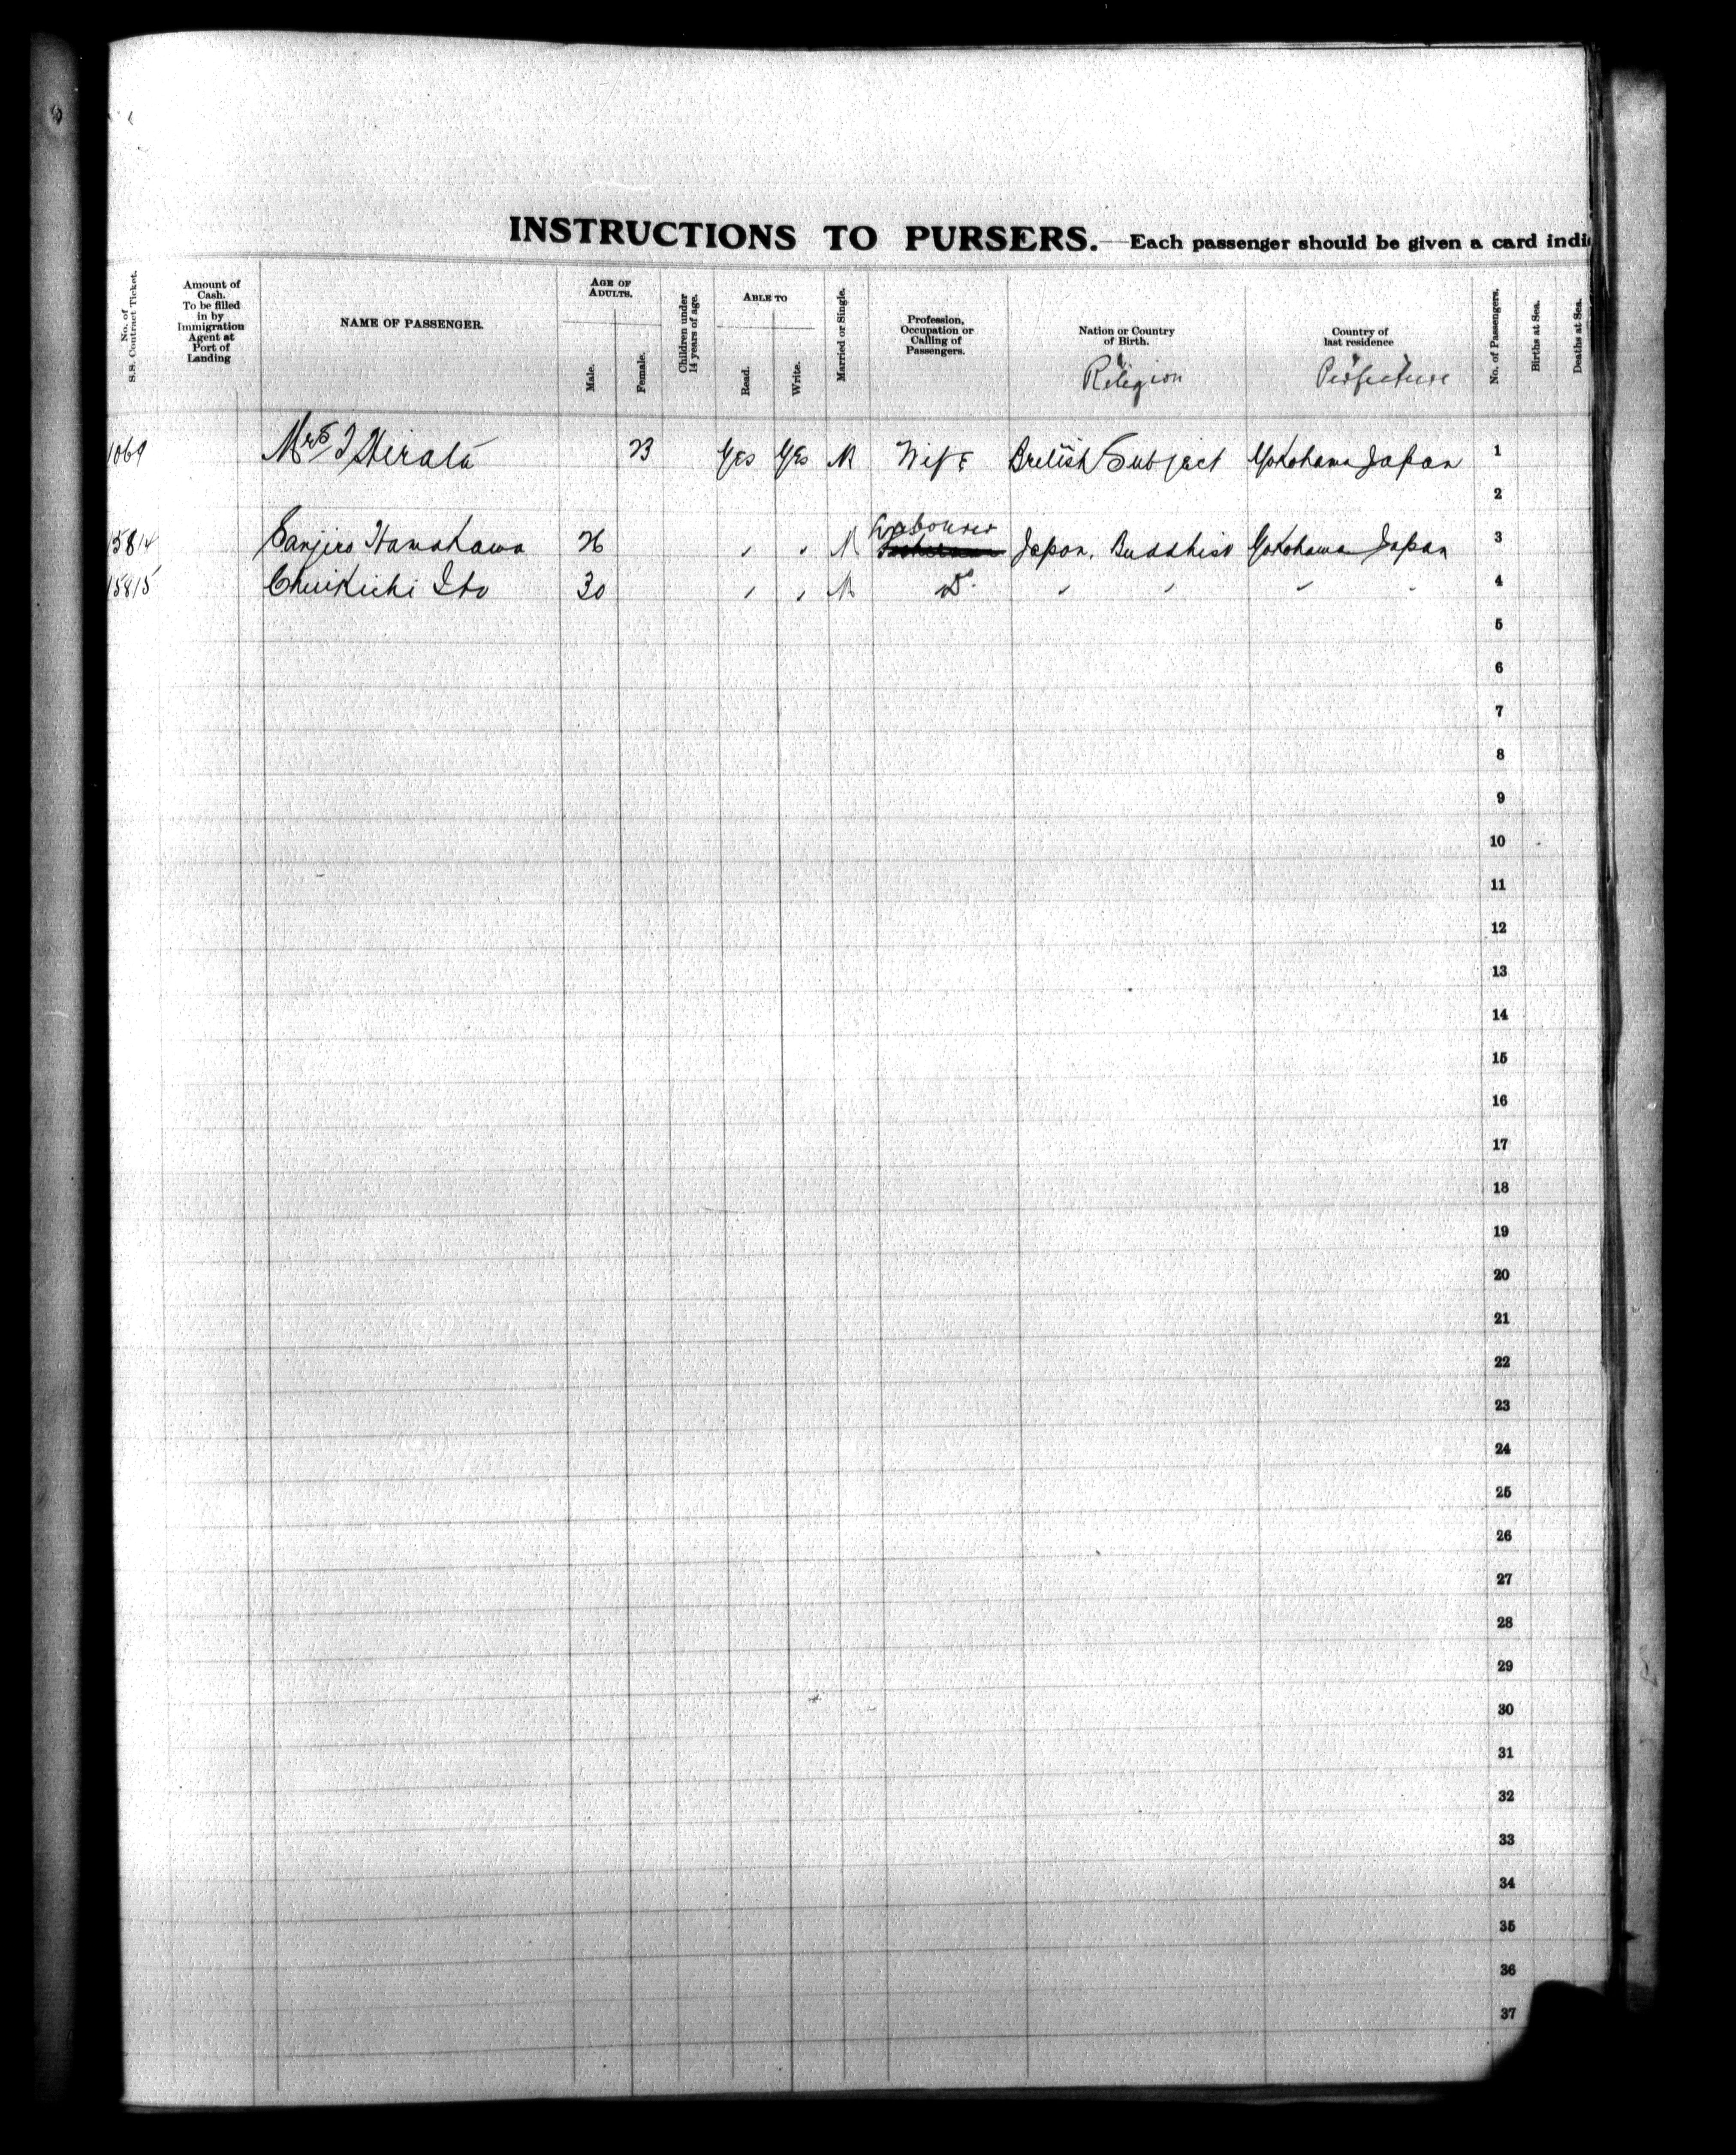 INSTRUCTIONS TO PURSERS. — Each passenger should be given a card indi
No. of S.S. Contract Ticket.
Amount of Cash. To be filled in by Immigration Agent at Port of Landing
NAME OF PASSENGER.
AGE OF ADULTS.
Male.
Female.
Children under 14 years of age.
ABLE TO
Read.
Write.
Married or Single.
Profession, Occupation or Calling of Passengers.
Nation or Country of Birth.
Religion
Country of last residence
Perfecture
No. of Passengers.
Births at Sea.
Deaths at Sea.
1069 Mrs I Hirata 23 Yes Yes M Wife British Subject Yokohama Japan 1
2
Labourer
15814 Sanjiro Hamakawa 26 " " M Japan. Buddhist Yokohama Japan 3
15815 Chuikichi Ito 30 " " M Do. " " " " 4
5
6
7
8
9
10
11
12
13
14
15
16
17
18
19
20
21
22
23
24
25
26
27
28
29
30
31
32
33
34
35
36
37